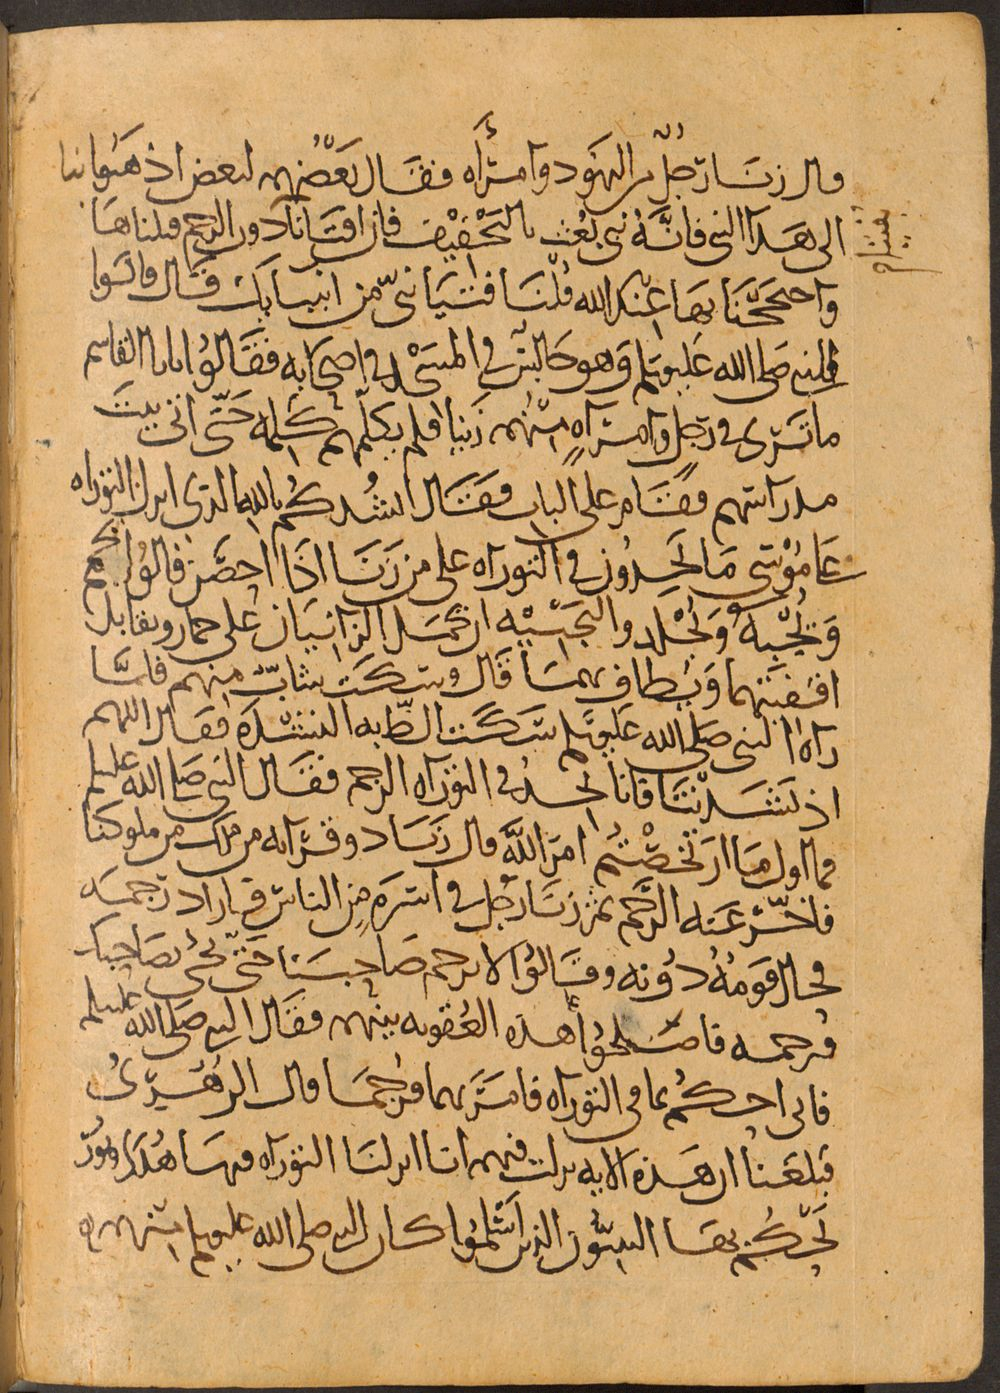 قال زنا رجل من اليهود وامرأه فقال بعضهم لبعض اذهبوا بنا
الى هذا النبي فانه نبي بعث بالتخفيف فان افتانا دون الرجم قبلناها
واحتججنا بها عند الله قلنا فتيا نبي من انبيايك قال فاتوا
النبي صلى الله عليه وسلم وهو جالس في المسجد في اصحابه فقالوا يابا القاسم
ما ترى في رجل وامراه منهم زنيا فلم يكلمهم كلمه حتى اتى بيت
مدراسهم فقام على الباب فقال انشدكم بالله الذي انزل التوراه
على موسى ما تجدون في التوراه على من زنا اذا احصن قالوا يحمم
ويجبه ويجلد والتجبيه ان يحمل الزانيان على حمار وتقابل
اقفيتهما ويطاف بهما قال وسكت شاب منهم فلما
راه النبي صلى الله عليه وسلم سكت الظ به النشده فقال اللهم
اذ نشدتنا فانا نجد في التوراه الرجم فقال النبي صلى الله عليه وسلم
فما اول ما ارتخصتم امر الله قال زنا ذو قرابه من ملك من ملوكنا
فاخر عنه الرجم ثم زنا رجل في اسره من الناس فاراد رجمه
فحال قومه دونه وقالوا لا يرجم صاحبنا حتى تجي بصاحبك
فترجمه فاصطلحوا هذه العقوبه بينهم فقال النبي صلى الله عليه وسلم
فاني احكم بما في التوراه فامر بهما فرجما قال الزهري
فبلغنا ان هذه الايه نزلت فيهم انا انزلنا التوراه فيها هدى ونور
يحكم بها النبيون الذين اسلموا كان النبي صلى الله عليه وسلم منهم